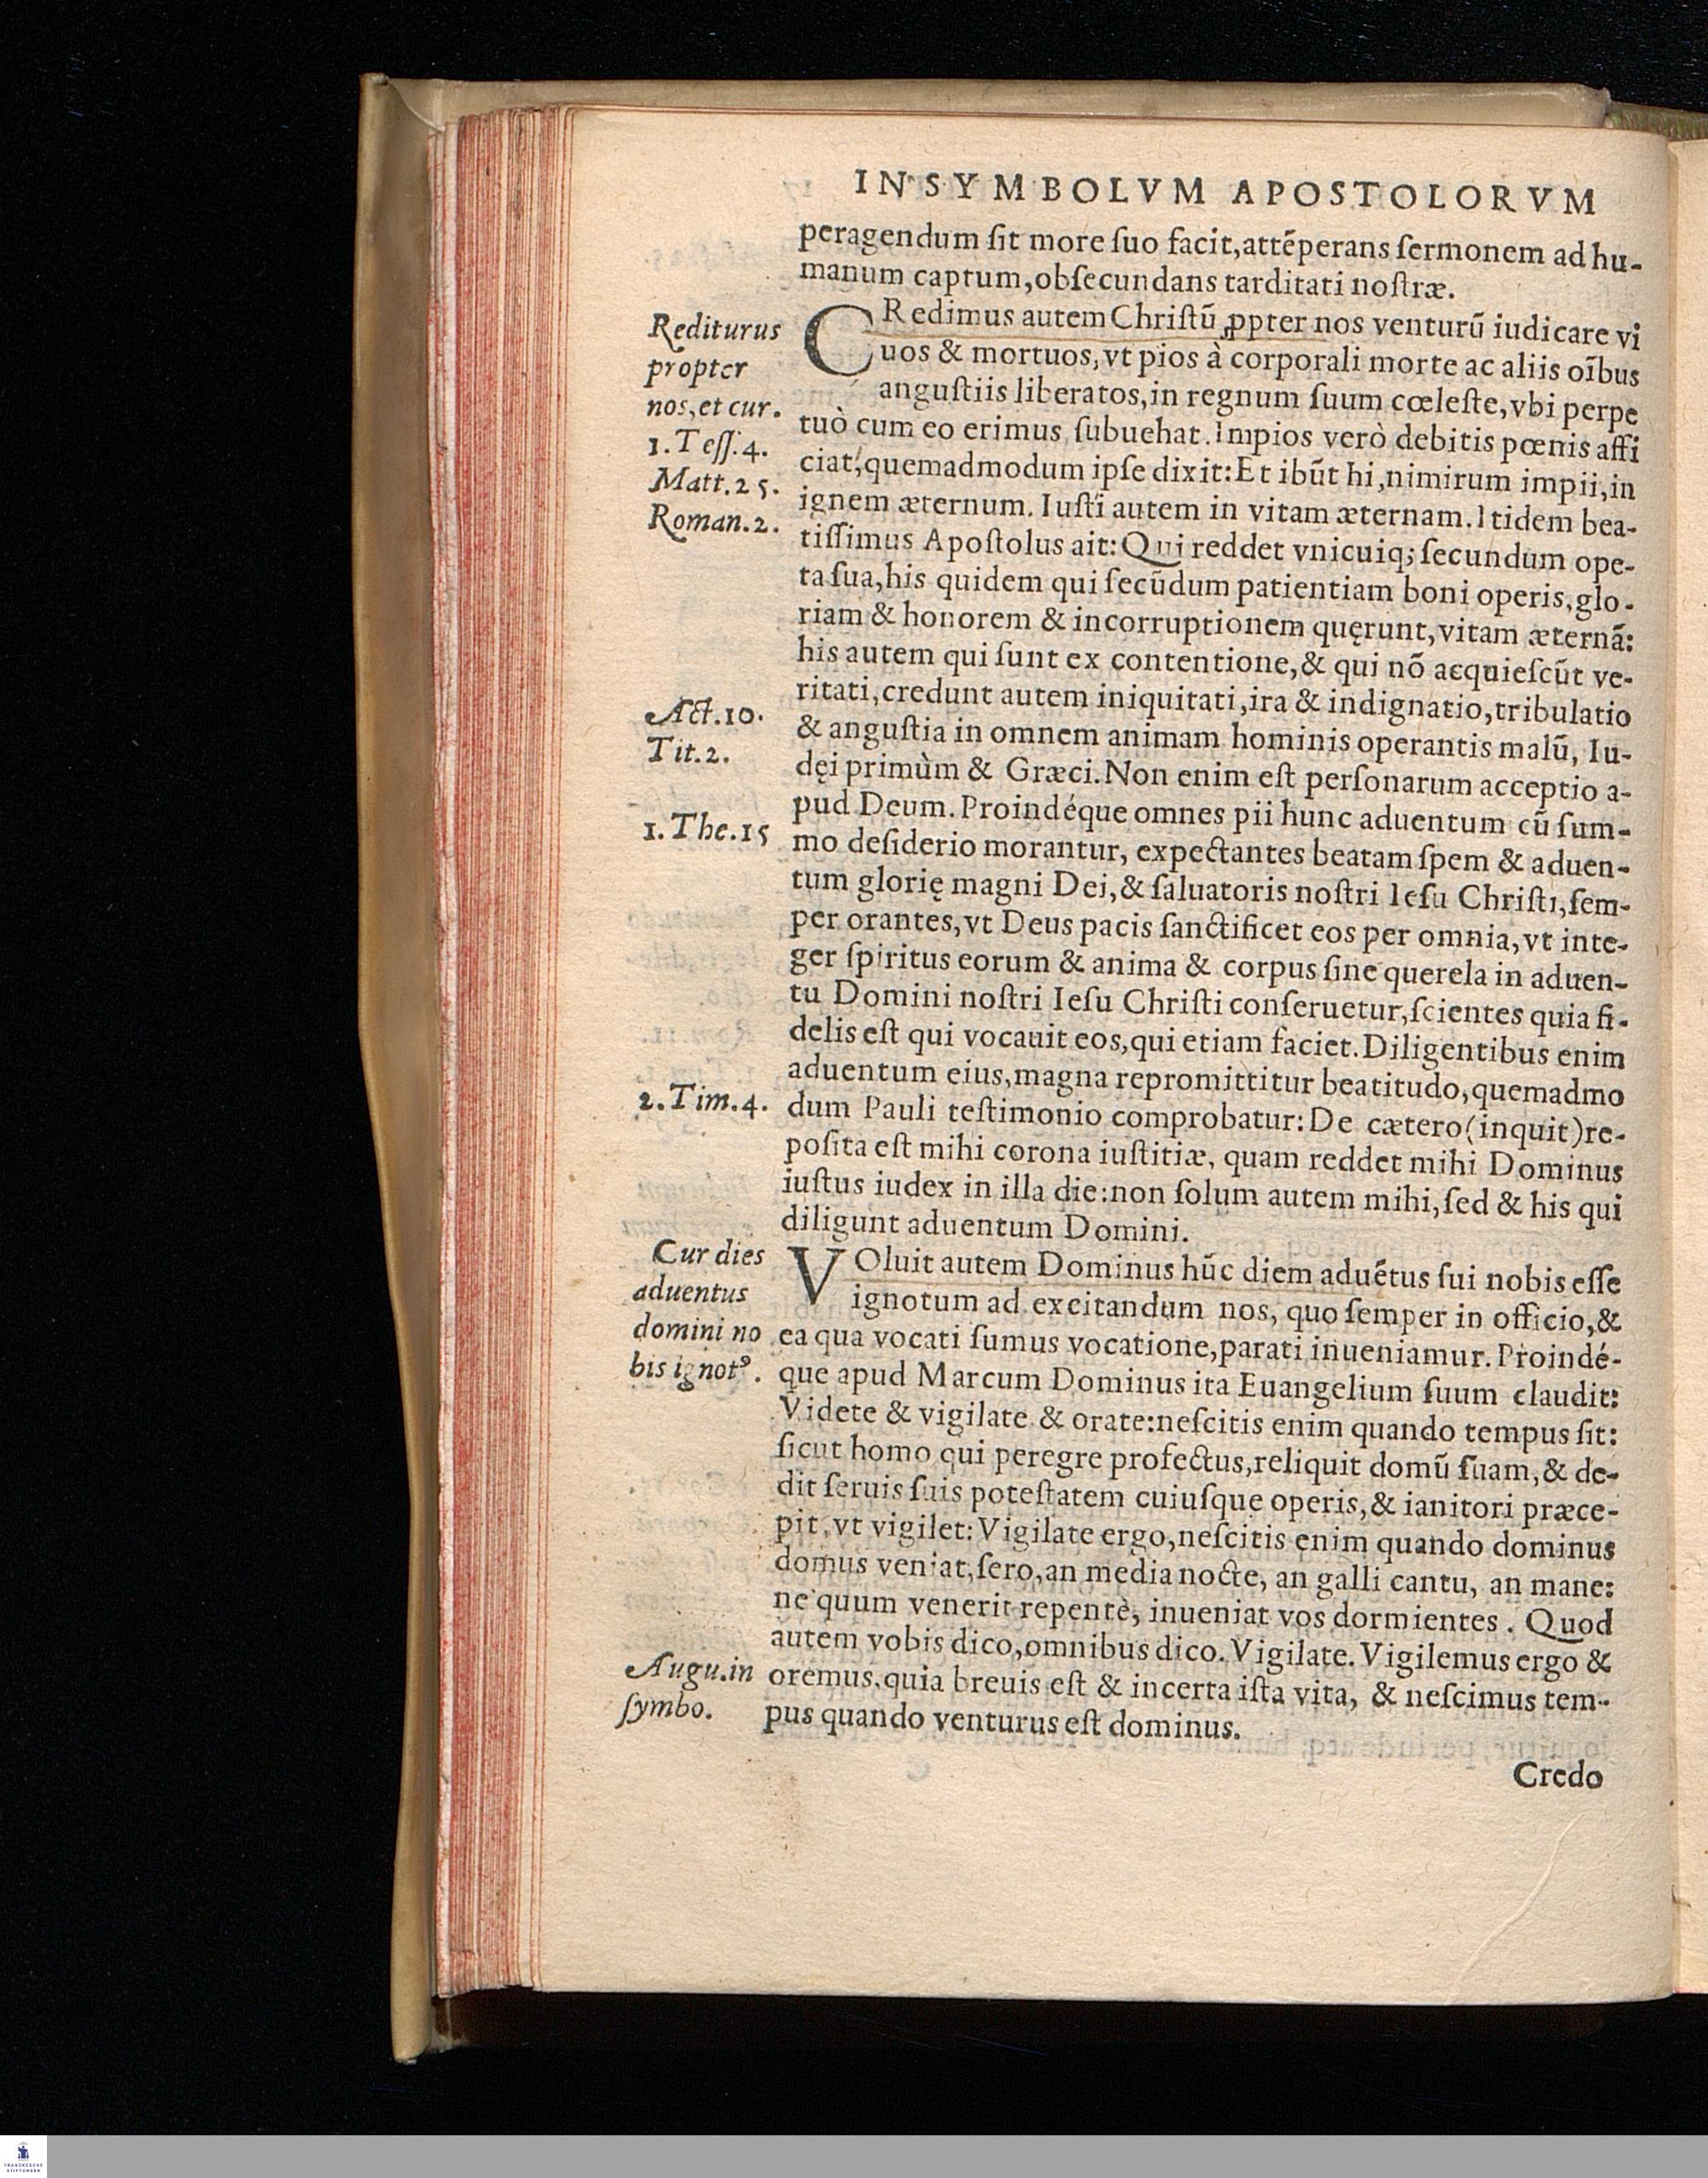 IN SYMBOLVM APOSTOLORVM
peragendum ſit more ſuo facit,attēperans ſermonem ad hu-
manum captum,obſecundans tarditati noſtræ.
Rediturus
propter
nos,et cur.
1.Teſſ.4.
Matt.25.
Roman.2.
CRedimus autem Chriſtū ꝓpter nos venturū iudicare vi
uos & mortuos,vt pios à corporali morte ac aliis oībus
anguſtiis liberatos,in regnum ſuum cœleſte,vbi perpe
tuò cum eo erimus ſubuehat.Impios verò debitis pœnis affi
ciat,quemadmodum ipſe dixit:Et ibūt hi,nimirum impii,in
ignem æternum. Iuſti autem in vitam æternam.Itidem bea-
tiſſimus Apoſtolus ait:Qui reddet vnicuiq; ſecundum ope-
ra ſua,his quidem qui ſecūdum patientiam boni operis,glo-
riam & honorem & incorruptionem quęrunt,vitam æternā:
his autem qui ſunt ex contentione,& qui nō acquieſcūt ve-
ritati,credunt autem iniquitati,ira & indignatio,tribulatio
Act.10.
Tit.2.
& anguſtia in omnem animam hominis operantis malū, Iu-
dęi primùm & Græci.Non enim eſt perſonarum acceptio a-
pud Deum.Proindéque omnes pii hunc aduentum cū ſum-
1.The.15
mo deſiderio morantur, expectantes beatam ſpem & aduen-
tum glorię magni Dei,& ſaluatoris noſtri Ieſu Chriſti,ſem-
per orantes,vt Deus pacis ſanctificet eos per omnia,vt inte-
ger ſpiritus eorum & anima & corpus ſine querela in aduen-
tu Domini noſtri Ieſu Chriſti conſeruetur,ſcientes quia fi-
delis eſt qui vocauit eos,qui etiam faciet.Diligentibus enim
aduentum eius,magna repromittitur beatitudo,quemadmo
2.Tim.4.
dum Pauli teſtimonio comprobatur:De cætero(inquit)re-
poſita eſt mihi corona iuſtitiæ, quam reddet mihi Dominus
iuſtus iudex in illa die:non ſolum autem mihi,ſed & his qui
diligunt aduentum Domini.
Cur dies
aduentus
domini no
bis ignotꝰ.
VOluit autem Dominus hūc diem aduētus ſui nobis eſſe
ignotum ad excitandum nos, quo ſemper in officio,&
ea qua vocati ſumus vocatione,parati inueniamur. Proindé-
que apud Marcum Dominus ita Euangelium ſuum claudit:
Videte & vigilate & orate:neſcitis enim quando tempus ſit:
ſicut homo qui peregre profectus,reliquit domū ſuam,& de-
dit ſeruis ſuis poteſtatem cuiuſque operis,& ianitori præce-
pit,vt vigilet:Vigilate ergo,neſcitis enim quando dominus
domus veniat,ſero,an media nocte, an galli cantu, an mane:
ne quum venerit repentè, inueniat vos dormientes . Quod
autem vobis dico,omnibus dico.Vigilate.Vigilemus ergo &
Augu.in
ſymbo.
oremus,quia breuis eſt & incerta iſta vita, & neſcimus tem-
pus quando venturus eſt dominus.
Credo
FRANCKESCHE
STIFTUNGEN